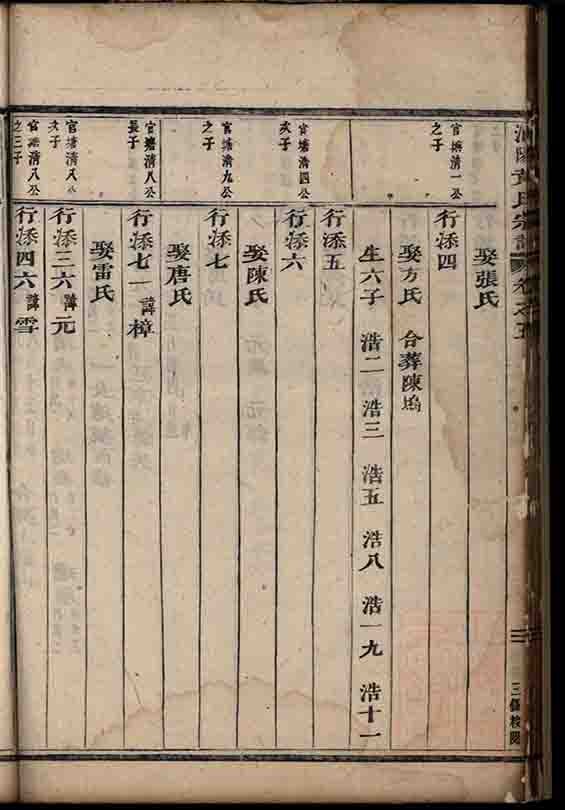 黃氏宗譜 卷之五
三修校閱
娶張氏
官塘清一公之子
行添四
娶方氏 合葬陳塢
生六子 浩二 浩三 浩五 浩八 浩一九 浩十一
行添五
官塘清四公次子
行添六
娶陳氏
官塘清九公之子
行添七
娶唐氏
官塘清八公長子
行添七一 諱樟
娶雷氏
官塘清八公次子
行添三六 諱元
官塘清八公之三子
行添四六 諱雪